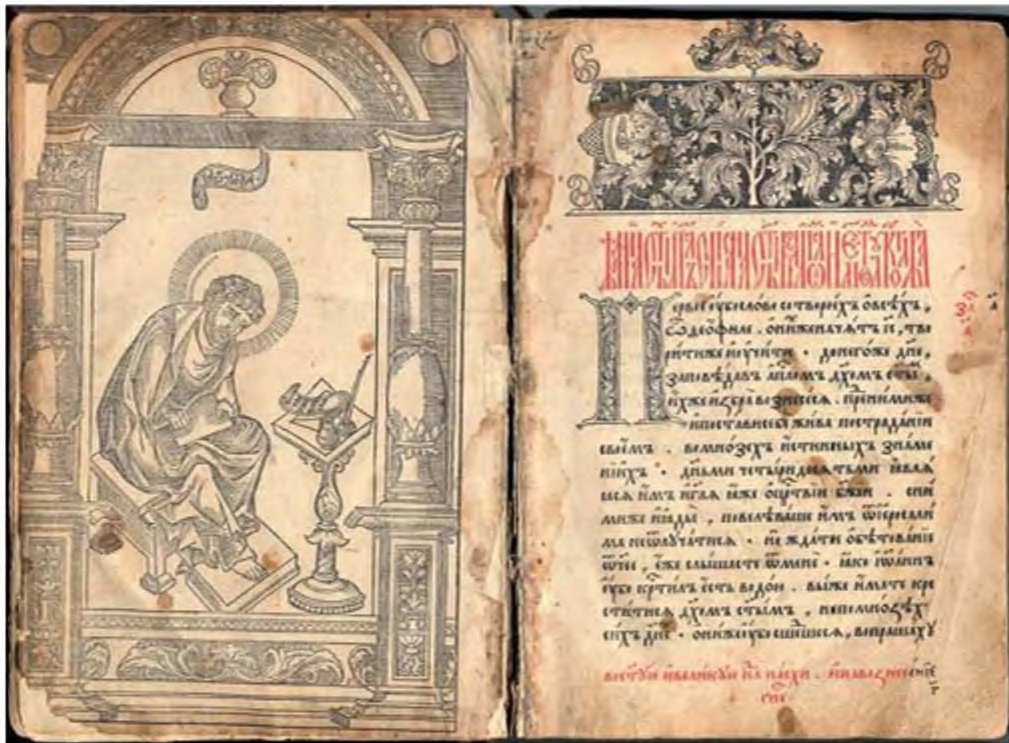 Первое ᲂу҆бо слово сотворихъ ѡ҆ всѣхъ ,
ѽ ѳеѡ҆филе . о҆ нихже начатъ і҆с҃ , тво
рити же и҆ ᲂу҆чити . до него же дн҃е ,
заповѣдавъ а҆пл҃омъ дх҃омъ ст҃ы ,
и҆хже и҆збра вознесеся . пред ними же
и҆ постави себе жива по страданїи
своемъ . во мнозехъ и҆стинныхъ знаме
нїихъ . дн҃ьми четыридесятьми ꙗ҆вляя
ся и҆мъ и҆ гл҃я ꙗ҆же о҆ црт҃вии бж҃їи . с ни
ми же и҆ ꙗ҆ды , повелѣваше и҆мъ ѿ і҆еросали
ма не ѿлучатися . но ждати о҆бѣтованїе
ѿчее , є҆же слышасте ѿ мене . ꙗ҆ко і҆ѡа҆ннъ
ᲂу҆бо кр҃тилъ є҆сть водою . вы же и҆мате кре
ститися дх҃омъ ст҃ымъ , не по мноѕѣхъ
сихъ дне . о҆ни же ᲂу҆бо сшешеся , вопрашаху
в ст҃ую и҆ великую нл҃ю пасхи . и҆ на вознесенїе
гн҃е